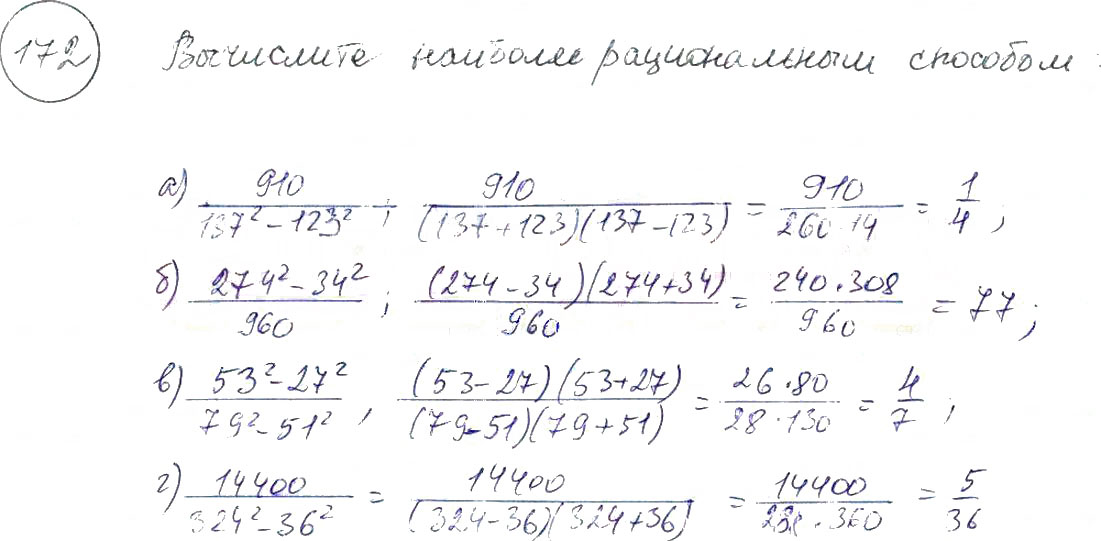 172 Вычислите наиболее рациональным способом:
а) 910 / (137² - 123²); 910 / ((137+123)(137-123)) = 910 / (260·14) = 1/4;
б) (274² - 34²) / 960; (274-34)(274+34) / 960 = 240·308 / 960 = 77;
в) (53² - 27²) / (79² - 51²), (53-27)(53+27) / ((79-51)(79+51)) = 26·80 / (28·130) = 4/7;
г) 14400 / (324² - 36²) = 14400 / ((324-36)(324+36)) = 14400 / (288·360) = 5/36